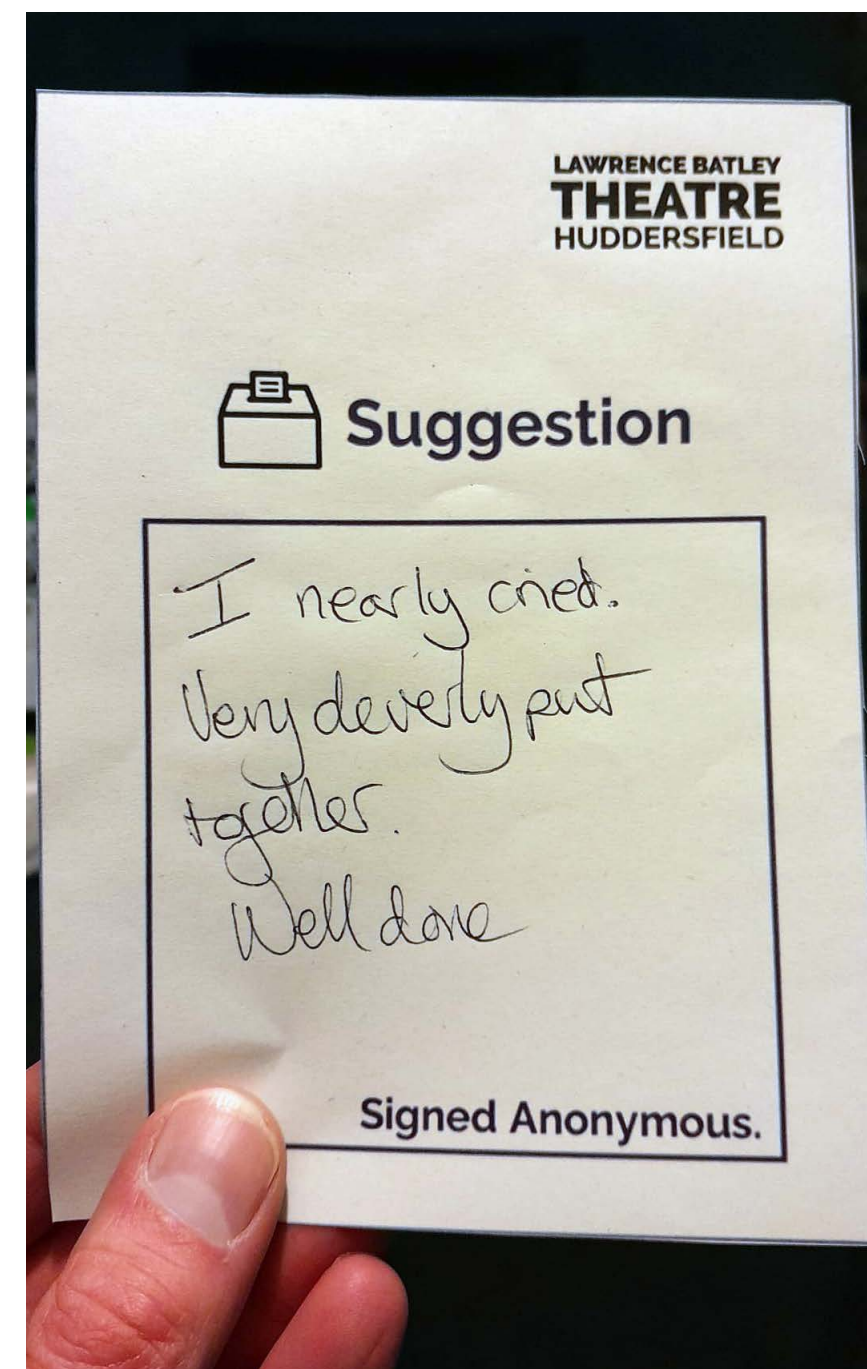 LAWRENCE BATLEY
THEATRE
HUDDERSFIELD
Suggestion
I nearly cried.
Very cleverly put
together.
Well done
Signed Anonymous.